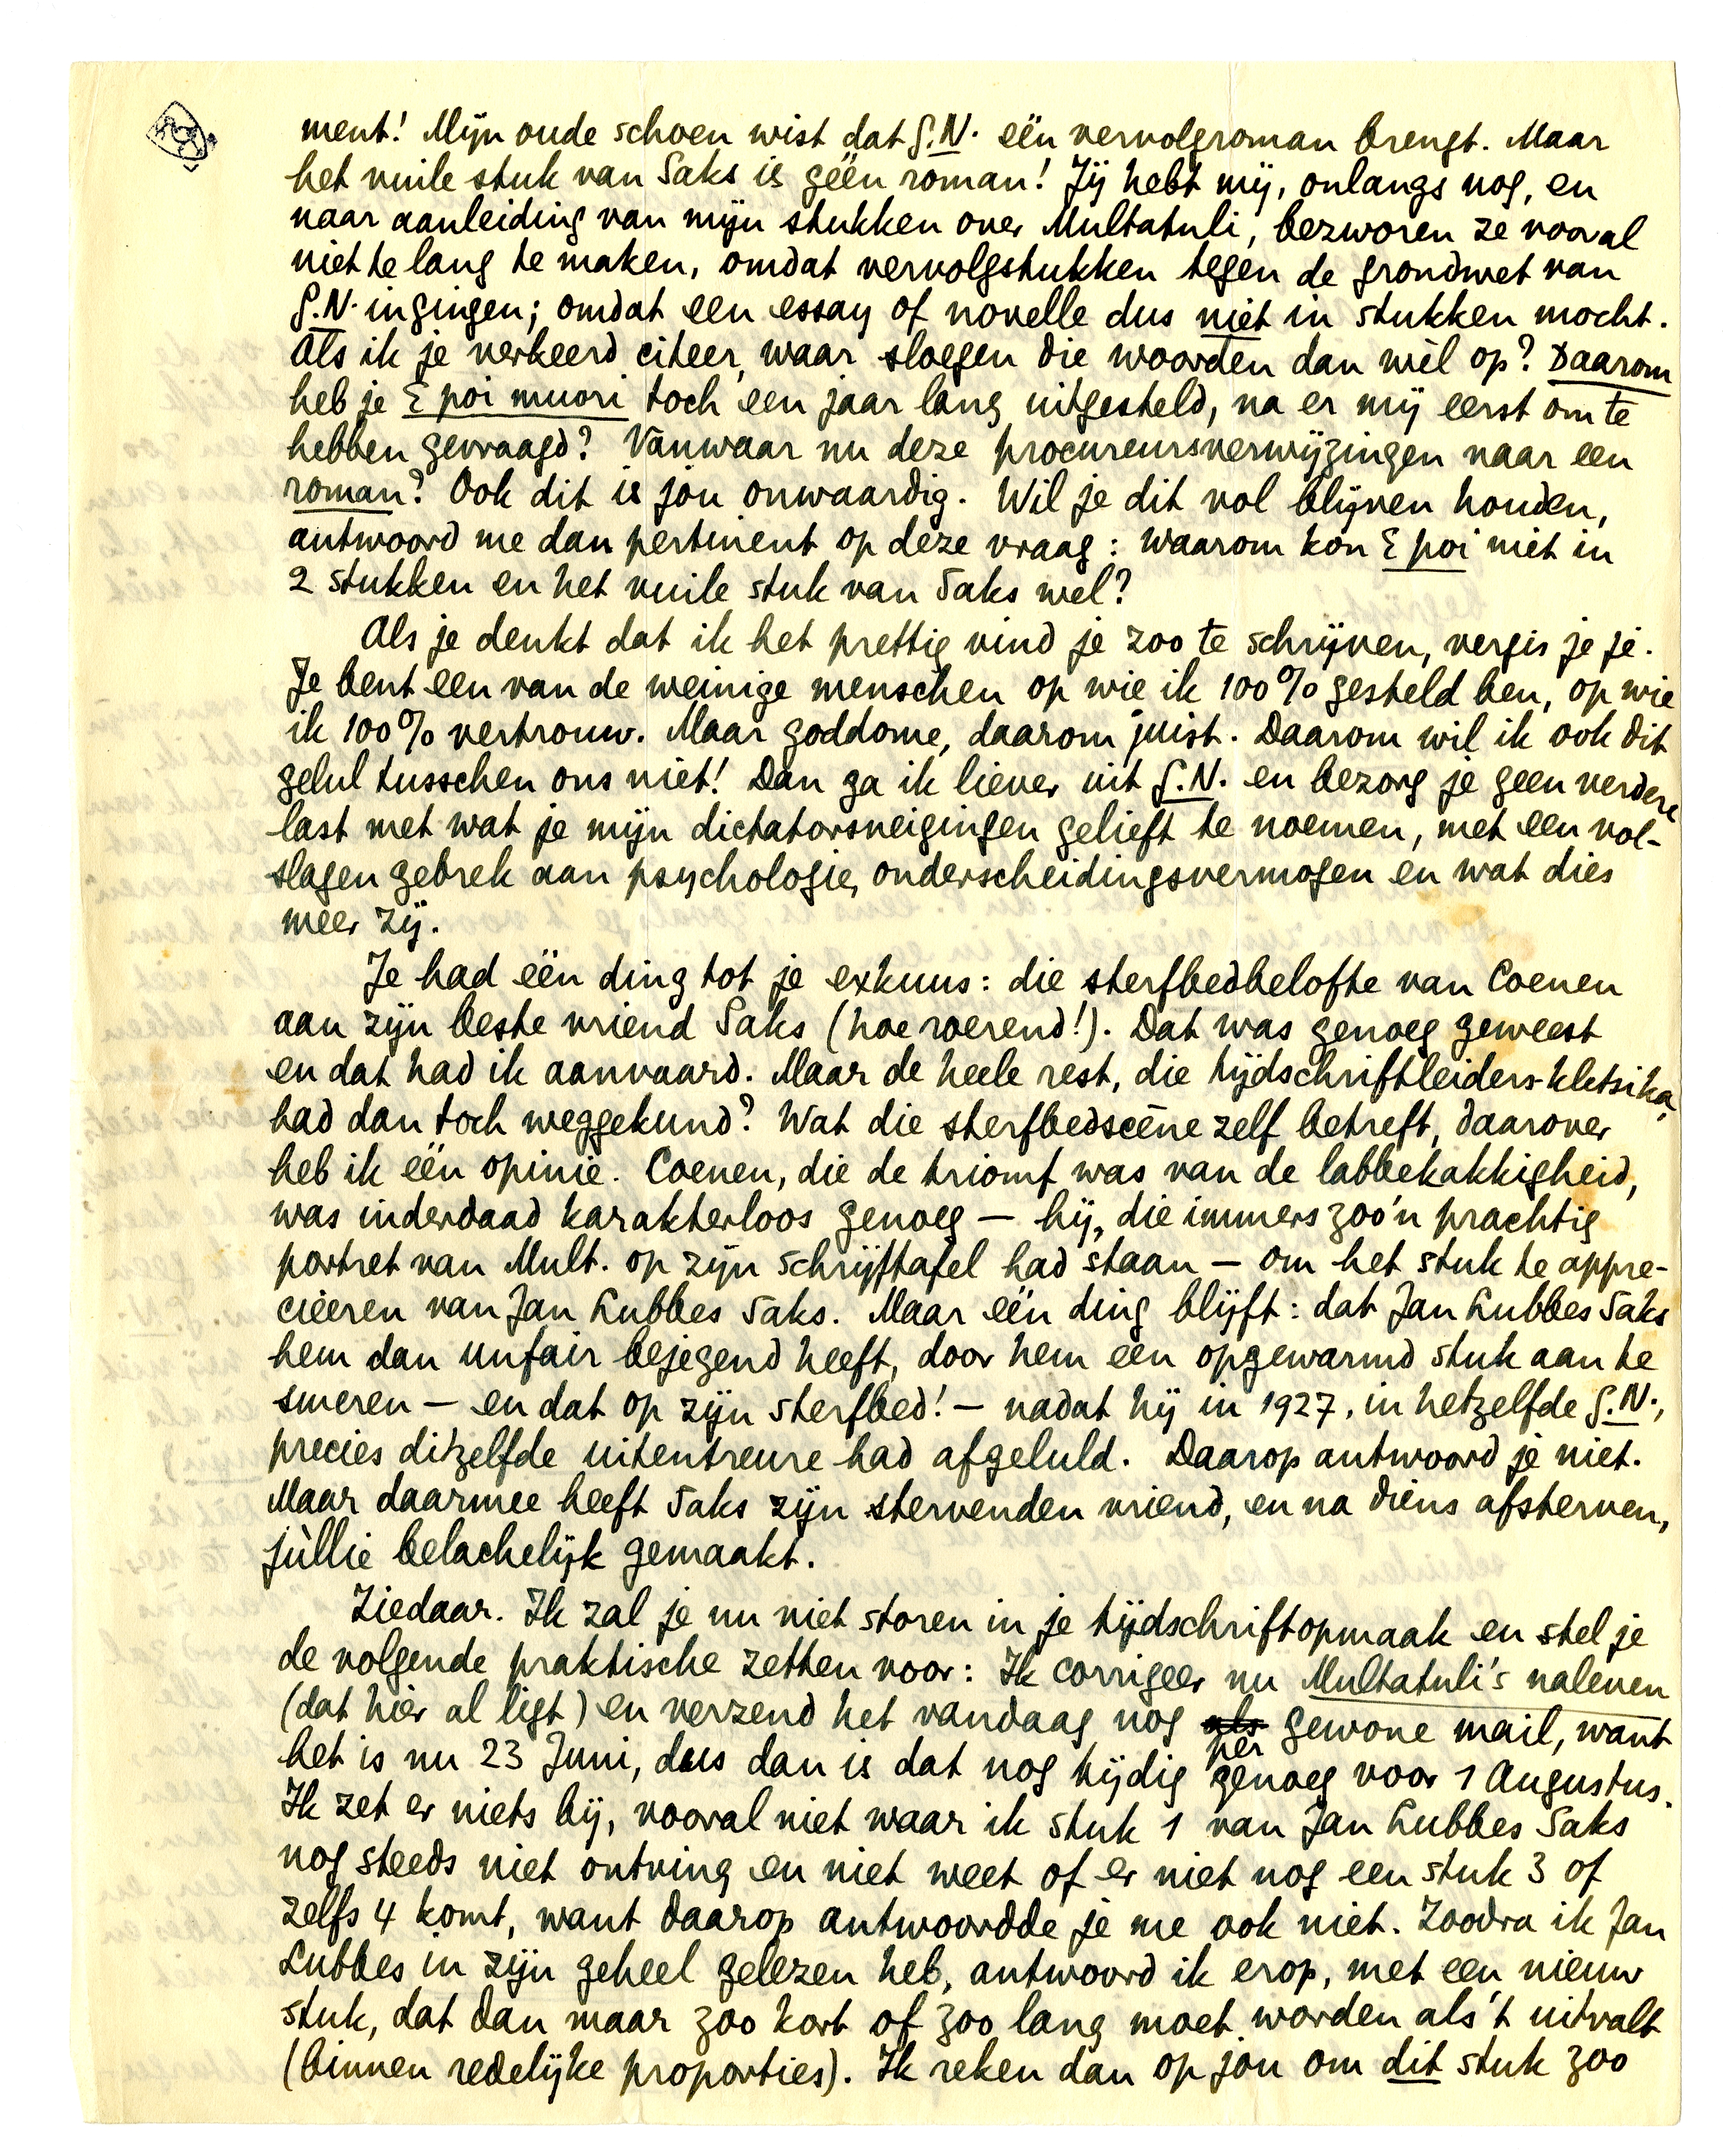 ment! Mijn oude schoen wist dat G.N. één vervolgroman brengt. Maar
het vuile stuk van Saks is géén roman! Jij hebt mij, onlangs nog, en
naar aanleiding van mijn stukken over Multatuli, bezworen ze vooral
niet te lang te maken, omdat vervolgstukken tegen de grondwet van
G.N. ingingen; omdat een essay of novelle dus niet in stukken mocht.
Als ik je verkeerd citeer, waar sloegen die woorden dan wèl op? Daarom
heb je E poi muori toch een jaar lang uitgesteld, na er mij eerst om te
hebben gevraagd? Vanwaar nu deze procureursverwijzingen naar een
roman? Ook dit is jou onwaardig. Wil je dit vol blijven houden,
antwoord me dan pertinent op deze vraag: waarom kon E poi niet in
2 stukken en het vuile stuk van Saks wel?
Als je denkt dat ik het prettig vind je zoo te schrijven, vergis je je.
Je bent een van de weinige menschen op wie ik 100% gesteld ben, op wie
ik 100% vertrouw. Maar goddome, daarom juist. Daarom wil ik ook dit
gelul tusschen ons niet! Dan ga ik liever uit G.N. en bezorg je geen verdere
last met wat je mijn dictatorsneigingen gelieft te noemen, met een vol-
slagen gebrek aan psychologie, onderscheidingsvermogen en wat dies
meer zij.
Je had één ding tot je exkuus: die sterfbedbelofte van Coenen
aan zijn beste vriend Saks (hoe roerend!). Dat was genoeg geweest
en dat had ik aanvaard. Maar de heele rest, die tijdschriftleiders-kletsika,
had dan toch weggekund? Wat die sterfbedscène zelf betreft, daarover
heb ik één opinie. Coenen, die de triomf was van de labbekakkigheid,
was inderdaad karakterloos genoeg — hij, die immers zoo'n prachtig
portret van Mult. op zijn schrijftafel had staan — om het stuk te appre-
cieeren van Jan Lubbes Saks. Maar één ding blijft: dat Jan Lubbes Saks
hem dan unfair bejegend heeft, door hem een opgewarmd stuk aan te
smeren — en dat op zijn sterfbed! — nadat hij in 1927, in hetzelfde G.N.,
precies ditzelfde uitentreure had afgeluld. Daarop antwoord je niet.
Maar daarmee heeft Saks zijn stervenden vriend, en na diens afsterven,
jùllie belachelijk gemaakt.
Ziedaar. Ik zal je nu niet storen in je tijdschriftopmaak en stel je
de volgende praktische zetten voor: Ik corrigeer nu Multatuli's naleven
(dat hier al ligt) en verzend het vandaag nog als per gewone mail, want
het is nu 23 Juni, dus dan is dat nog tijdig genoeg voor 1 Augustus.
Ik zet er niets bij, vooral niet waar ik stuk 1 van Jan Lubbes Saks
nog steeds niet ontving en niet weet of er niet nog een stuk 3 of
zelfs 4 komt, want daarop antwoordde je me ook niet. Zoodra ik Jan
Lubbes in zijn geheel gelezen heb, antwoord ik erop, met een nieuw
stuk, dat dan maar zoo kort of zoo lang moet worden als 't uitvalt
(binnen redelijke proporties). Ik reken dan op jou om dit stuk zoo